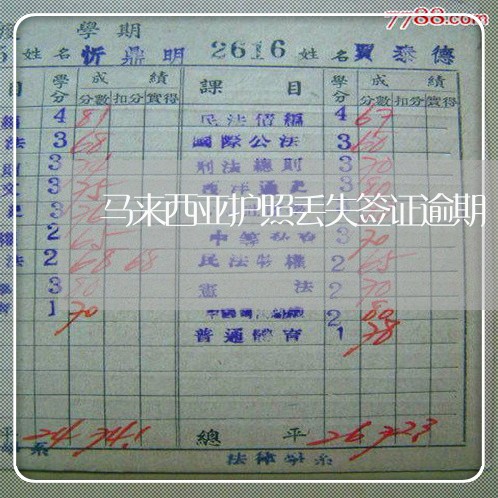 7788.com
學期
姓名 忻鼎明 2616 姓名 賈泰德
目 學分 成績 課目 學分 成績
分數 扣分 實得 分數 扣分 實得
4 81 民法債編 4 67
法 3 68 國際公法 3 60
3 刑法總則 3 70
3 75 西洋通史 3 80
马来西亚护照丢失签证逾期
2 65 3 70
法 2 68 68 民法物權 2 65
3 80 憲法 2 70
1 70 2 80
普通體育 1 78
平 24 74.1 總平 26 72.3
系 法律學系